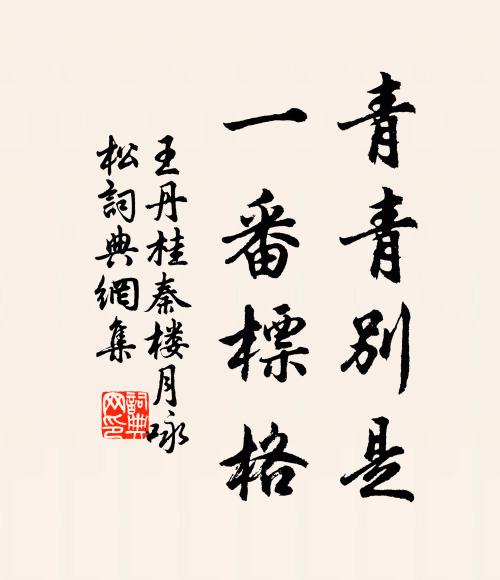 青青别是
一番標格
王丹桂秦楼月咏
松詞典網集
詞典
网印